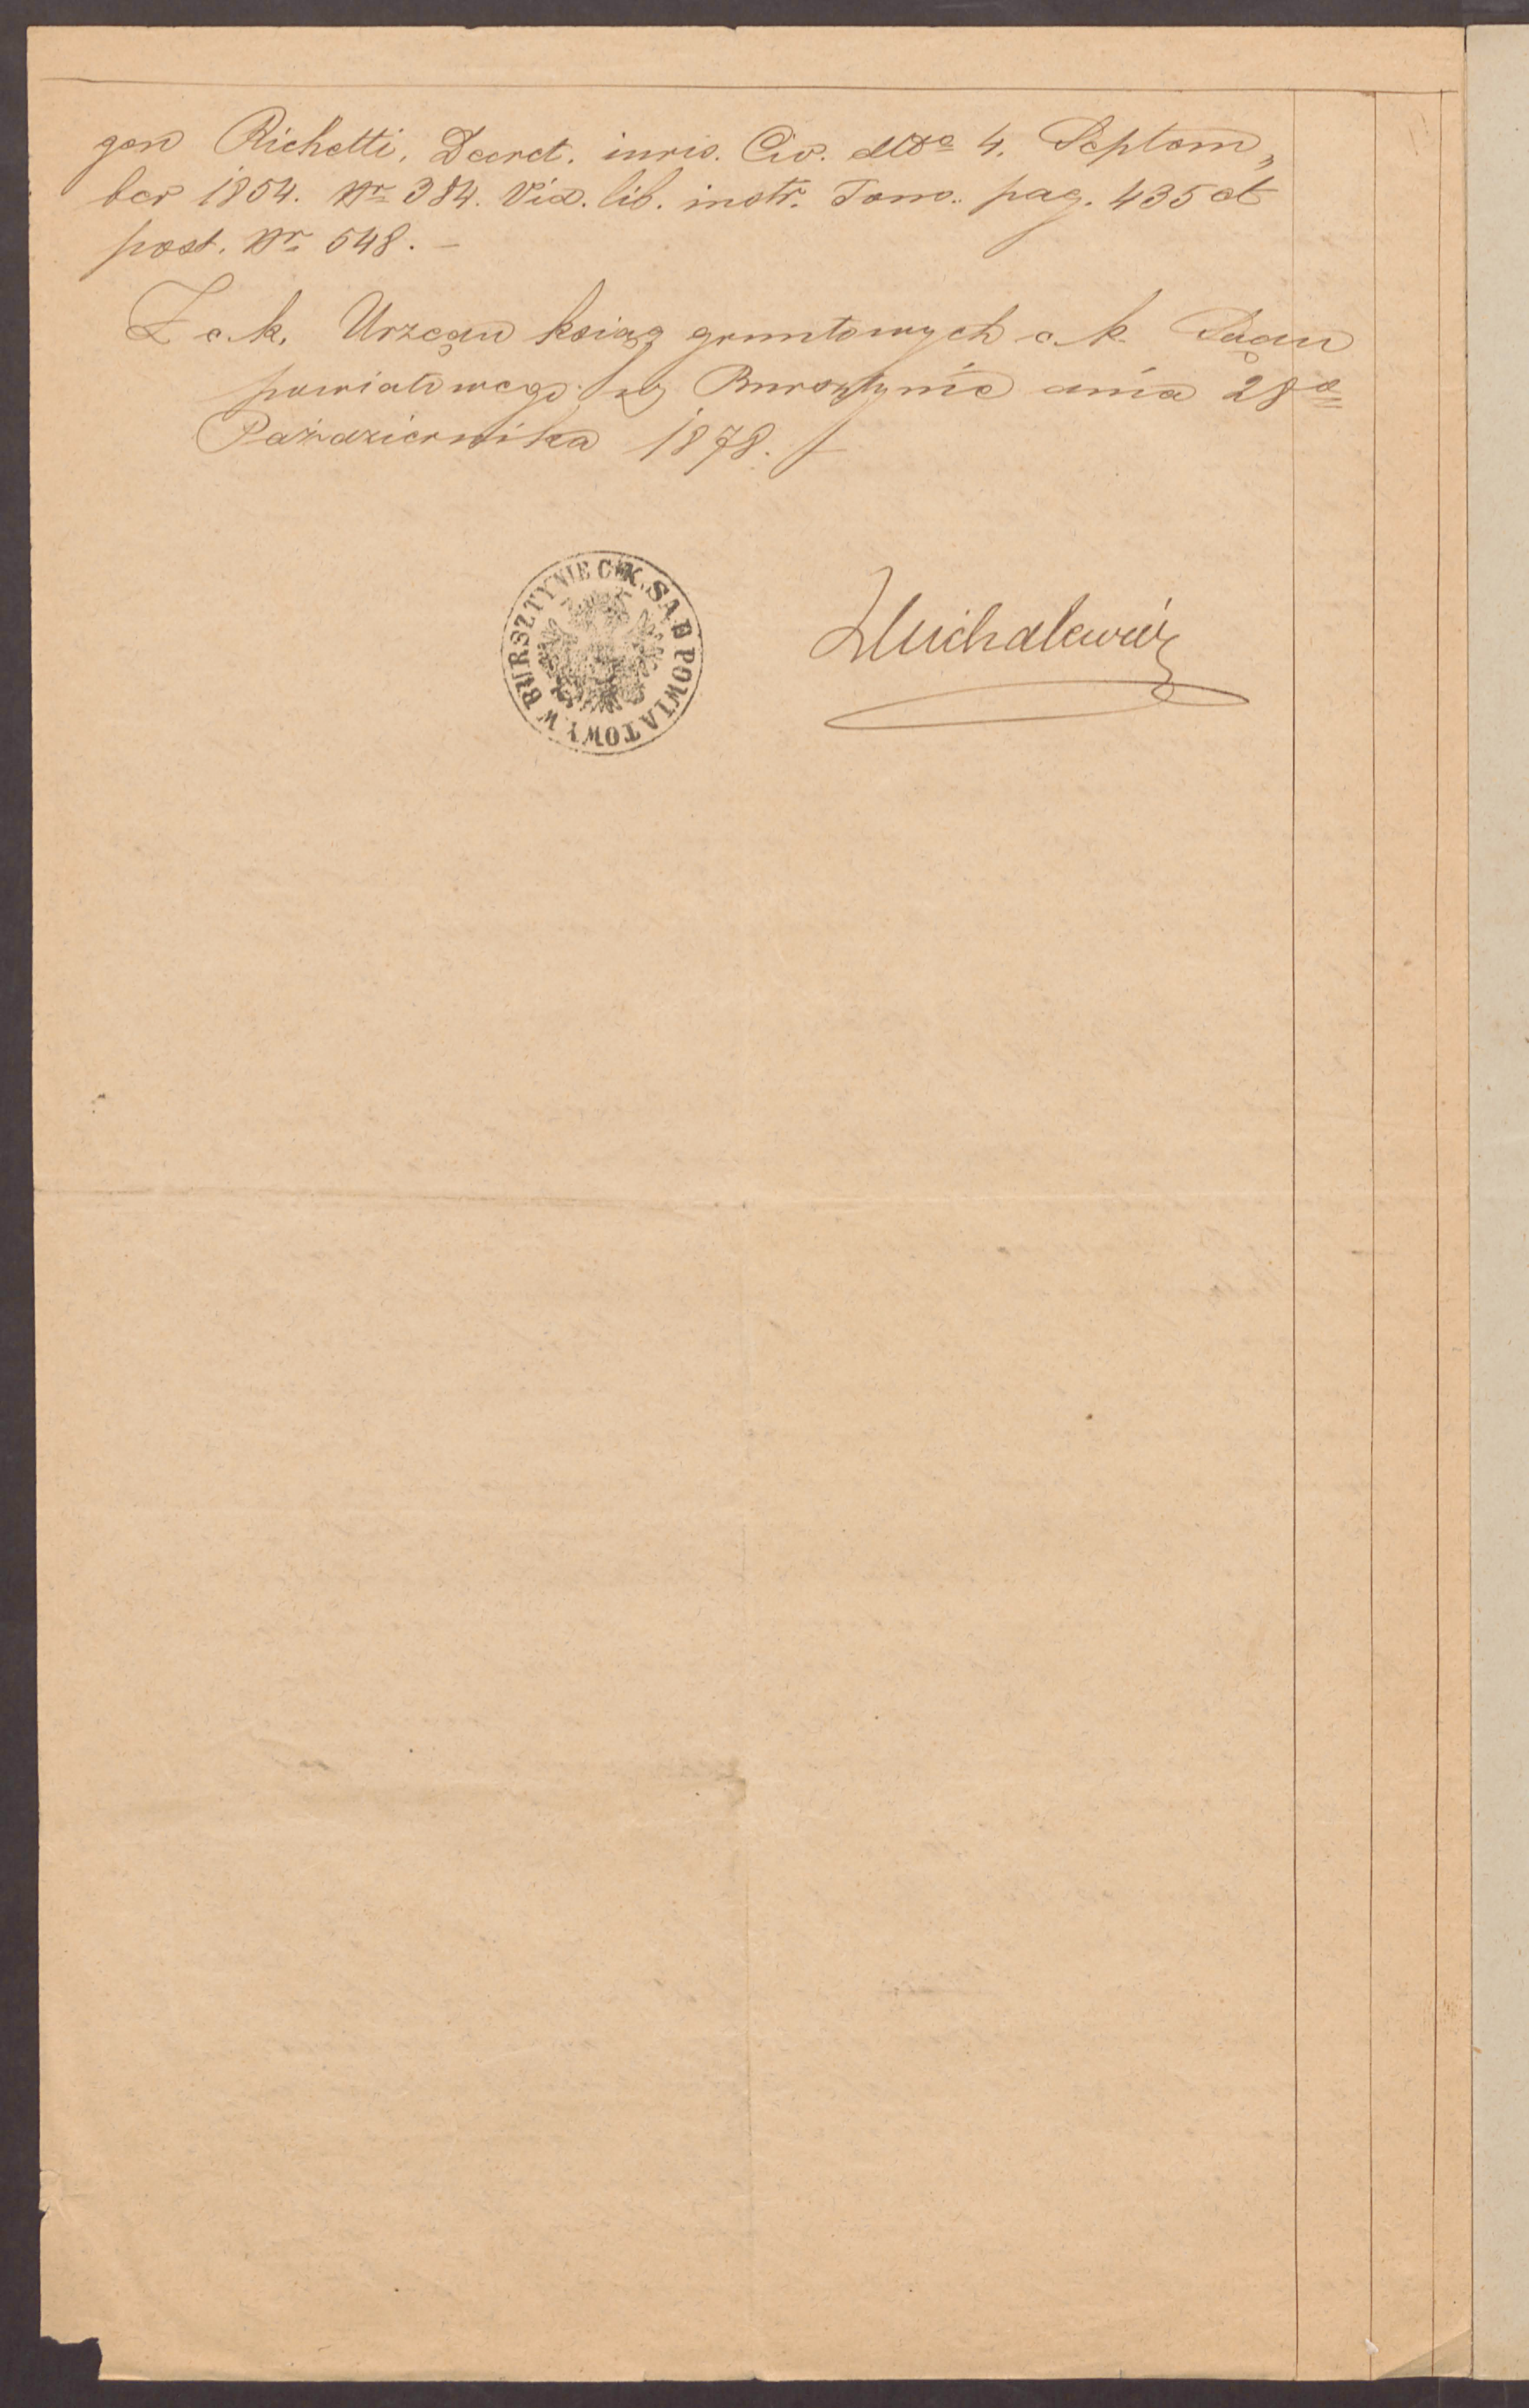 gen Richetti, Decret. iuris. Civ. ddto 4. Septem„
ber 1854. Nr 384. Vid. lib. instr. Tom. pag. 435 et
post. Nr 548. –
Z c. k. Urzędu ksiąg gruntowych c. k. Sądu
powiatowego w Bursztynie dnia 28go
Października 1878.
W BURSZTYNIE C. K. SĄD POWIATOWY
Michalewicz